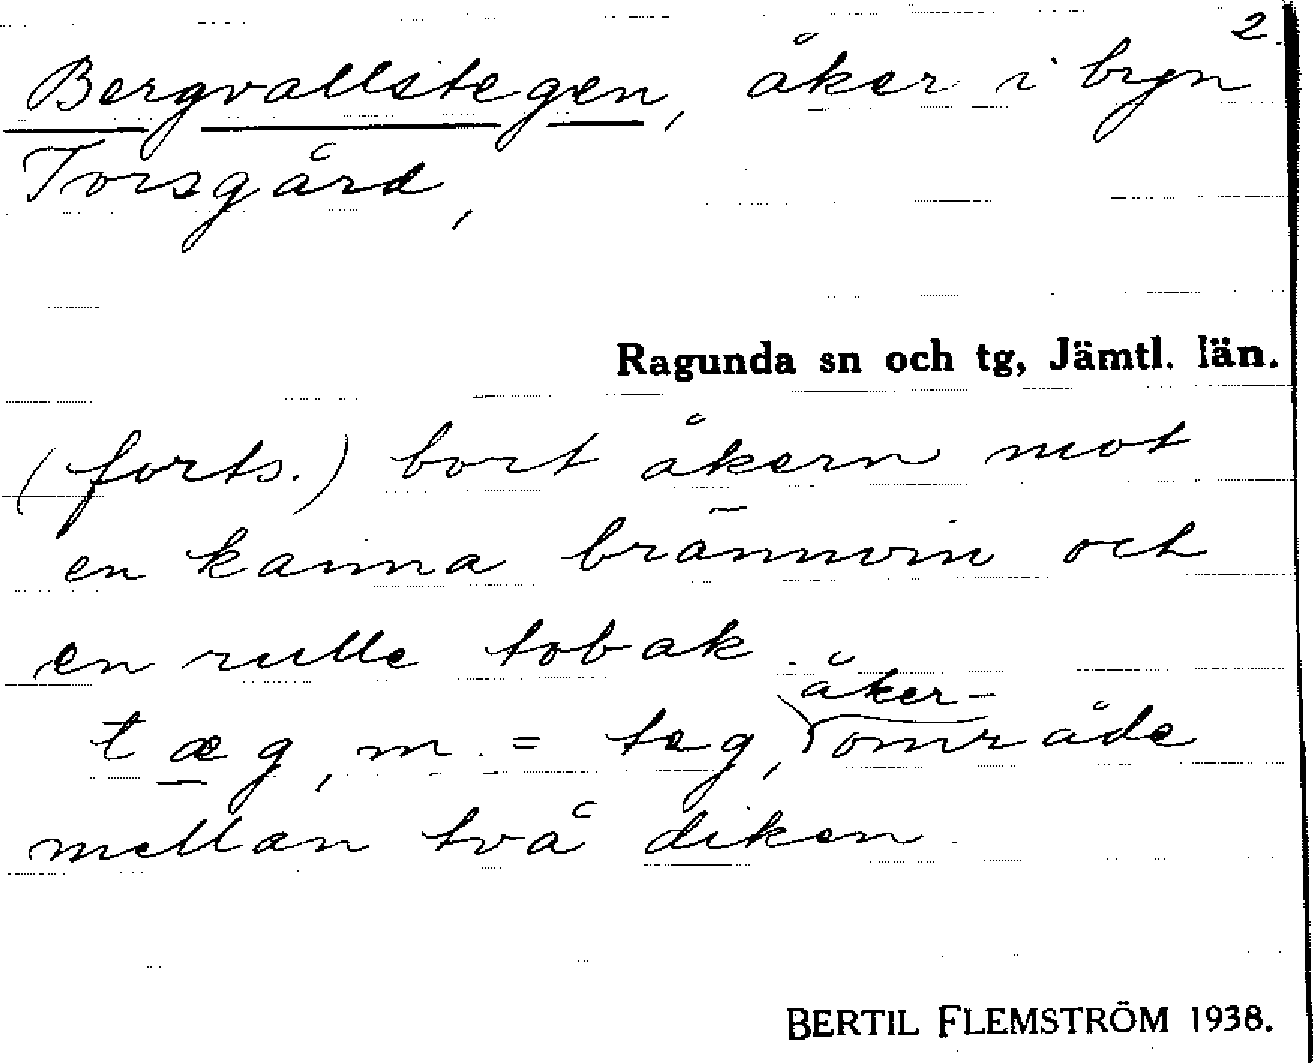 2.
Bergvallstegen, åker i byn
Torsgård,
Ragunda sn och tg, Jämtl. län.
(forts.) bort åkern mot
en kanna brännvin och
en rulle tobak.
tæg, m. = teg, åker-
område
mellan två diken.
BERTIL FLEMSTRÖM 1938.